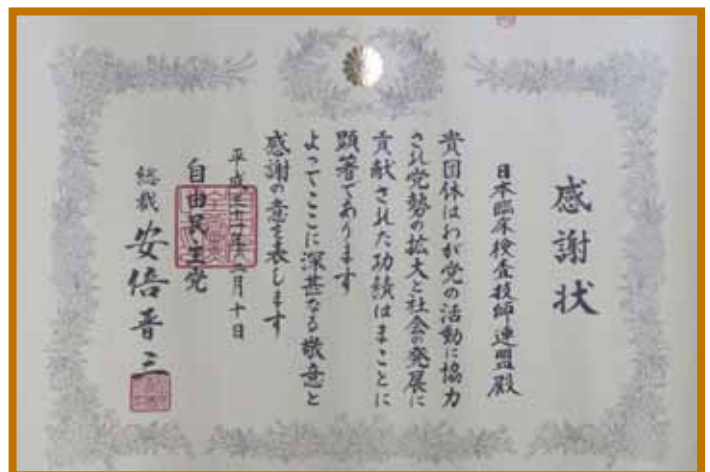 感謝状
日本臨床検査技師連盟殿
貴団体はわが党の活動に協力
され党勢の拡大と社会の発展に
貢献された功績はまことに
顕著であります
よってここに深甚なる敬意と
感謝の意を表します
平成三十一年二月十日
自由民主党
総裁 安倍晋三